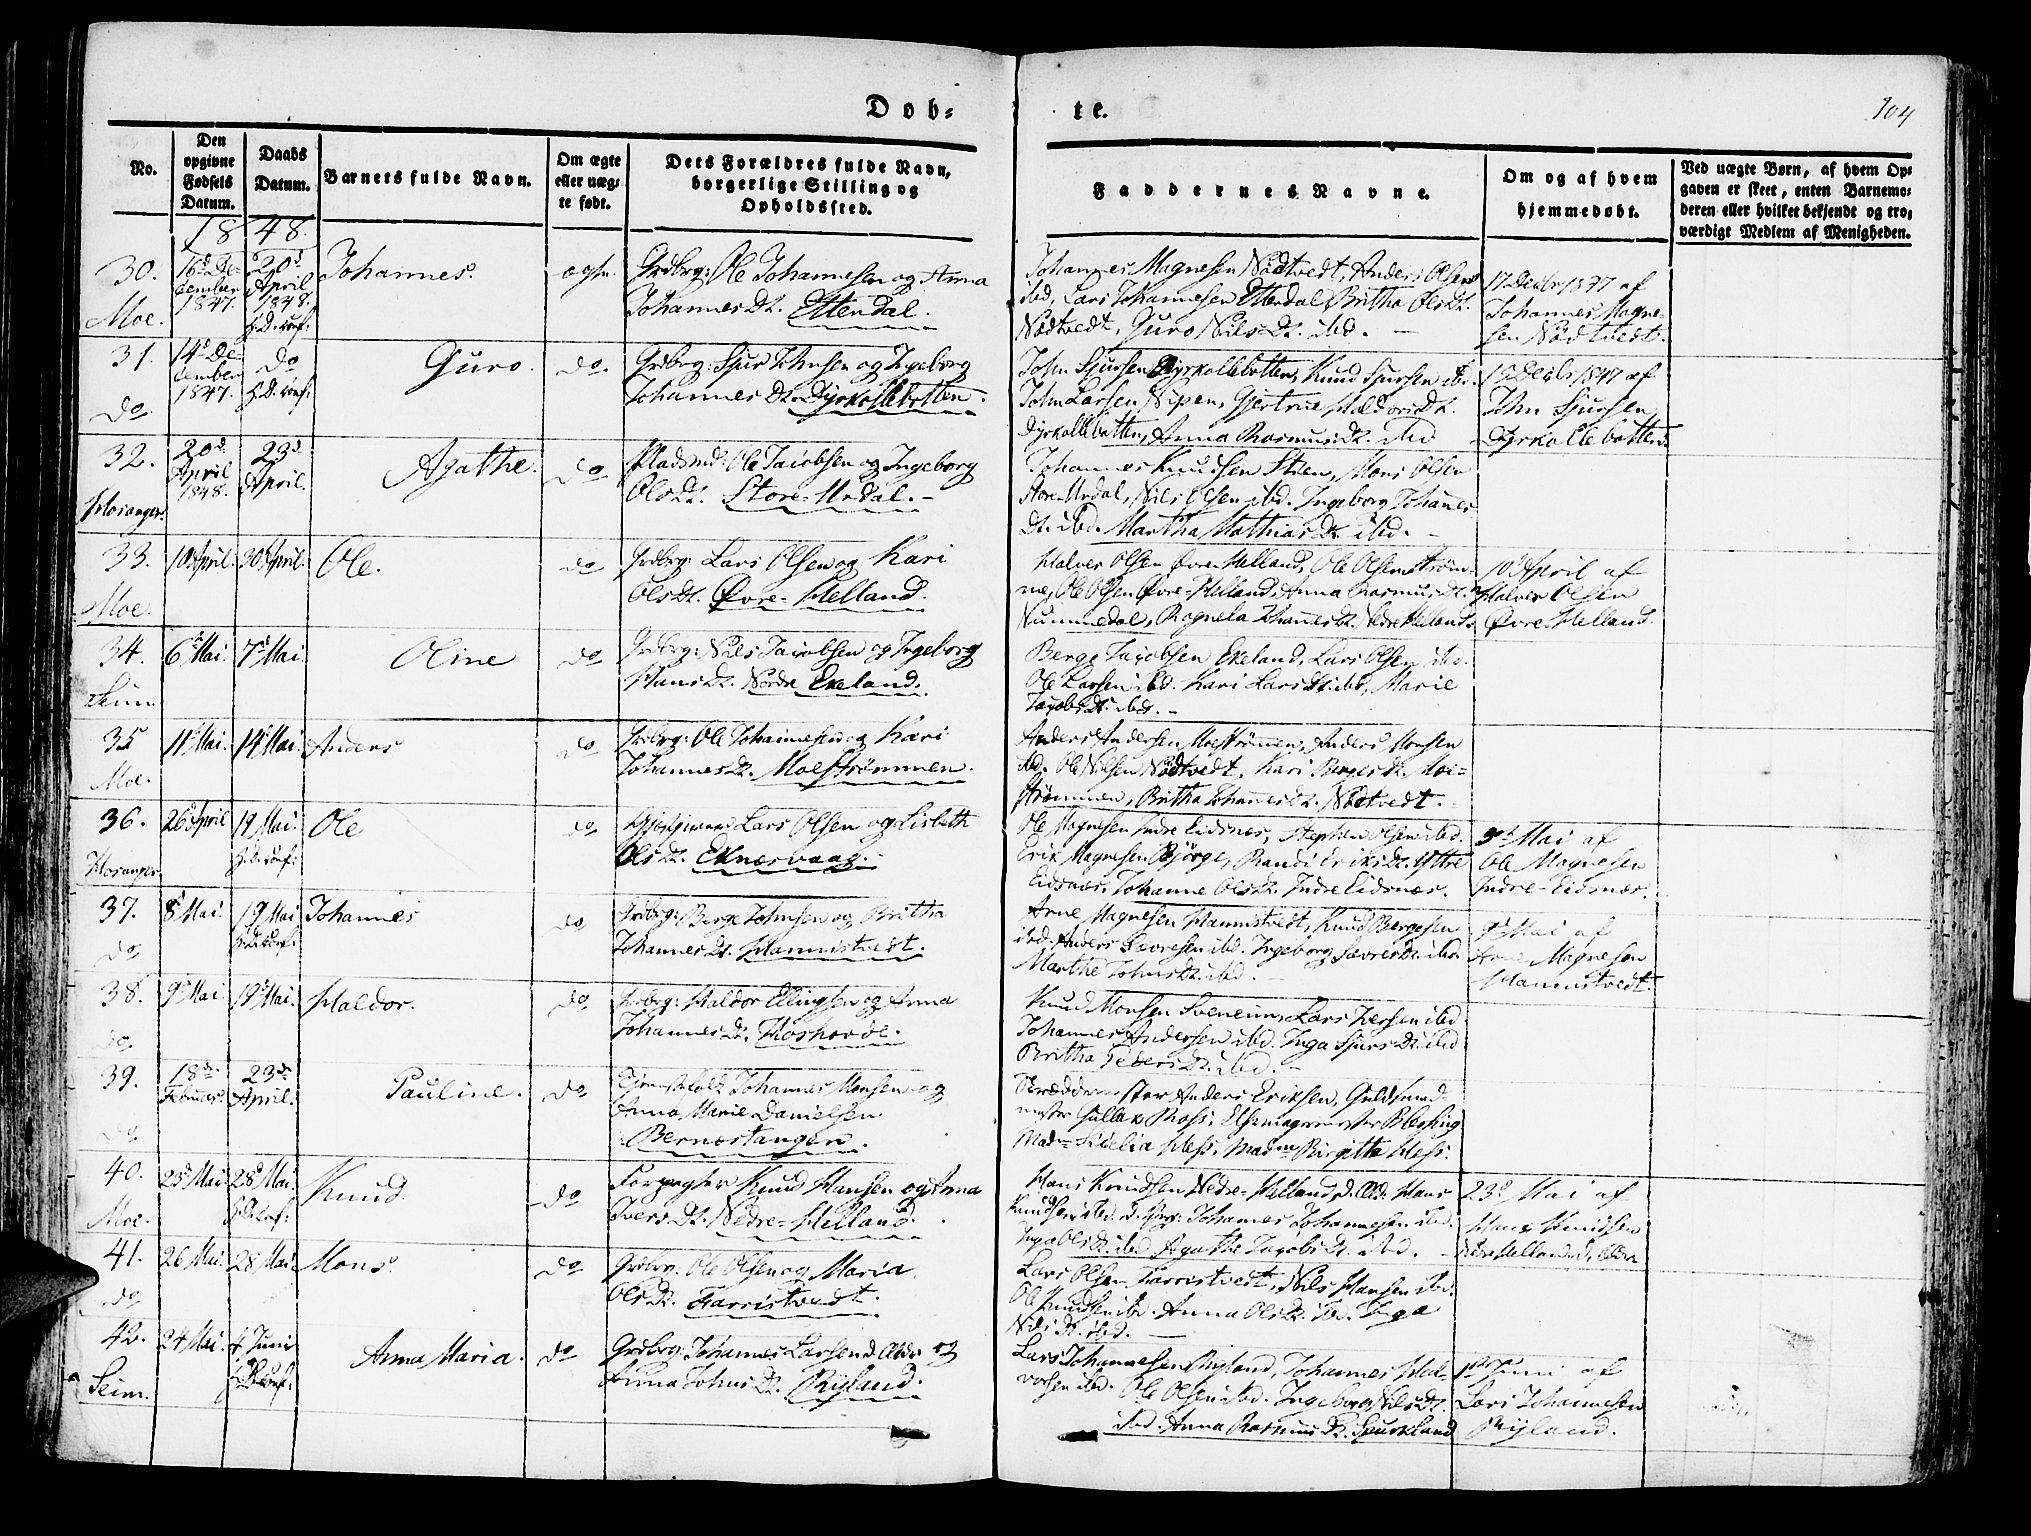 Døb-
te.
104
No.
Den
opgivne
Fødsels
Datum.
Daabs
Datum.
Barnets fulde Navn.
Om ægte
eller uæg-
te født.
Dets Forældres fulde Navn,
borgerlige Stilling og
Opholdssted.
Faddernes Navne.
Om og af hvem
hjemmedøbt.
Ved uægte Børn, af hvem Op-
gaven er skeet, enten Barnemo-
deren eller hvilket bekjendt og tro-
værdigt Medlem af Menigheden.
1848.
30.
Moe.
16d De-
cember
1847.
20d
April
1848.
Johannes.
Grdbrg: Ole Johannesen og Anna
Johannes Dt. Ettendal.
Johannes Magnesen Nødtvedt, Anders Olsen
ibd, Lars Johannesen Ettendal, Britha Ols Dt.
Nødtvedt, Guro Nils Dt. ibd.
17 Decbr 1847 af
Johannes Magne-
sen Nødtvedt.
31.
do
14d De-
cember
1847.
do
Guro.
do.
Grdbrg: Sjur Johnsen og Ingeborg
Johannes Dt. Dyrkollebotten.
John Sjursen Dyrkollebotten, Knud Sjursen ibd.
John Larsen Nipen, Gjertrue Haldors Dt.
Dyrkollebotten, Anna Rasmus Dt. ibd
Decbr 1847 af
John Sjursen
Dyrkollebotten.
32.
Hosanger.
20d
April
1848.
23d
April.
Agathe.
do
Pladsmd: Ole Jacobsen og Ingeborg
Ols Dt. Store-Urdal.
Johannes Knudsen Stien, Mons Olsen
Store-Urdal, Nils Olsen ibd. Ingeborg Johannes
Dt. ibd. Martha Mathias Dt. ibd.
33.
Moe.
10 April.
30 April.
Ole.
do
Grdbrg: Lars Olsen og Kari
Ols Dt. Øvre-Helland.
Halver Olsen Øvre-Helland, Ole Olsen Strøm-
me, Ole Olsen Øvre-Helland, Anna Rasmus Dt.
Nummedal, Ragnela Johannes Dt. Nedre Helland.
10 April af
Halver Olsen
Øvre-Helland.
34.
Seim
6d Mai.
7d Mai.
Oline
do
Grdbrg: Nils Jacobsen og Ingeborg
Hans Dt. Nordre Ekeland.
Berge Jacobsen Ekeland, Lars Olsen ibd.
Ole Larsen ibd. Kari Lars Dt. ibd, Marie
Jacobs Dt. ibd.
35
Moe.
11d Mai.
14d Mai.
Anders
do
Grdbrg: Ole Johannesen og Kari
Johannes Dt. Moestrømmen.
Anders Andersen Moestrømmen, Anders Monsen
ibd. Ole Nilsen Nødtvedt, Kari Berges Dt. Moe-
strømmen, Britha Johannes Dt. Nødtvedt.
36.
Hosanger.
26d April
19 Mai.
Ole
do
Lars Olsen og Lisbeth
Ols Dt. Eknæsvaag.
Ole Magnesen Indre Eidsnæs, Stephen Olsen ibd.
Erik Magnesen Bjørge, Randi Eriks Dt. Ystre
Eidsnæs, Johanne Ols Dt. Indre Eidsnæs.
3d Mai af
Ole Magnesen
Indre-Eidsnæs.
37.
do
8d Mai.
19 Mai
Johannes
do
Grdbrg: Berge Johnsen og Britha
Johannes Dt. Hannistvedt.
Arne Magnesen Hannistvedt, Knud Bergesen
ibd. Anders Sævresen ibd. Ingeborg Sævres Dt. ibd.
Marthe Johns Dt. ibd.
9d Mai af
Arne Magnesen
Hannistvedt.
38.
do
9d Mai.
19d Mai.
Haldor.
do
Grdbrg: Haldor Ellingsen og Anna
Johannes Dt.
Knud Monsen Lars Iversen ibd.
Johannes Andersen ibd. Inga Sjurs Dt. ibd
Britha Peders Dt. ibd.
39.
do
18de
Februar.
23de
April.
Pauline.
do
Johannes Monsen og
Anna Marie Danielsen
Bernestangen.
Skræddermester Anders Eriksen, Guldsmed-
mester Ross, Blessing
Madme Hess, Madme Birgitta Hess.
40.
Moe.
25d Mai
28d Mai.
Knud.
do
Forpagter Knud Hansen og Anna
Ivers Dt. Nedre-Helland.
Hans Knudsen Nedre-Helland d. Æld: Hans
Knudsen ibd. d. Yng: Johannes Johannesen ibd.
Inga Ols Dt. ibd Agathe Jacobs Dt. ibd.
23d Mai af
Hans Knudsen
Nedre Helland d. Ældre
41.
do
26 Mai.
28 Mai.
Mons.
do
Grdbrg. Ole Olsen og Maria
Ols Dt. Farristvedt.
Lars Olsen Farristvedt, Nils Hansen ibd.
Ole Knudsen ibd. Anna Ols Dt. ibd. Inga
Nils Dt. ibd.
42.
Seim.
24 Mai.
4 Juni
Anna Maria.
do
Grdbrg: Johannes Larsen d. Ældre og
Anna Johns Dt. Ryland.
Lars Johannesen Ryland, Johannes Hal-
vorsen ibd. Ole Olsen ibd. Ingeborg Nils Dt.
ibd. Anna Rasmus Dt. Spurkland
1ste Juni af
Lars Johannesen
Ryland.